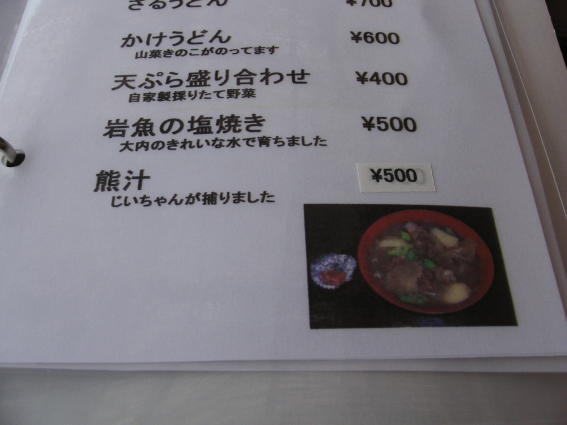 ざるうどん ¥700
かけうどん ¥600
山菜きのこがのってます
天ぷら盛り合わせ ¥400
自家製採りたて野菜
岩魚の塩焼き ¥500
大内のきれいな水で育ちました
熊汁 ¥500
じいちゃんが捕りました